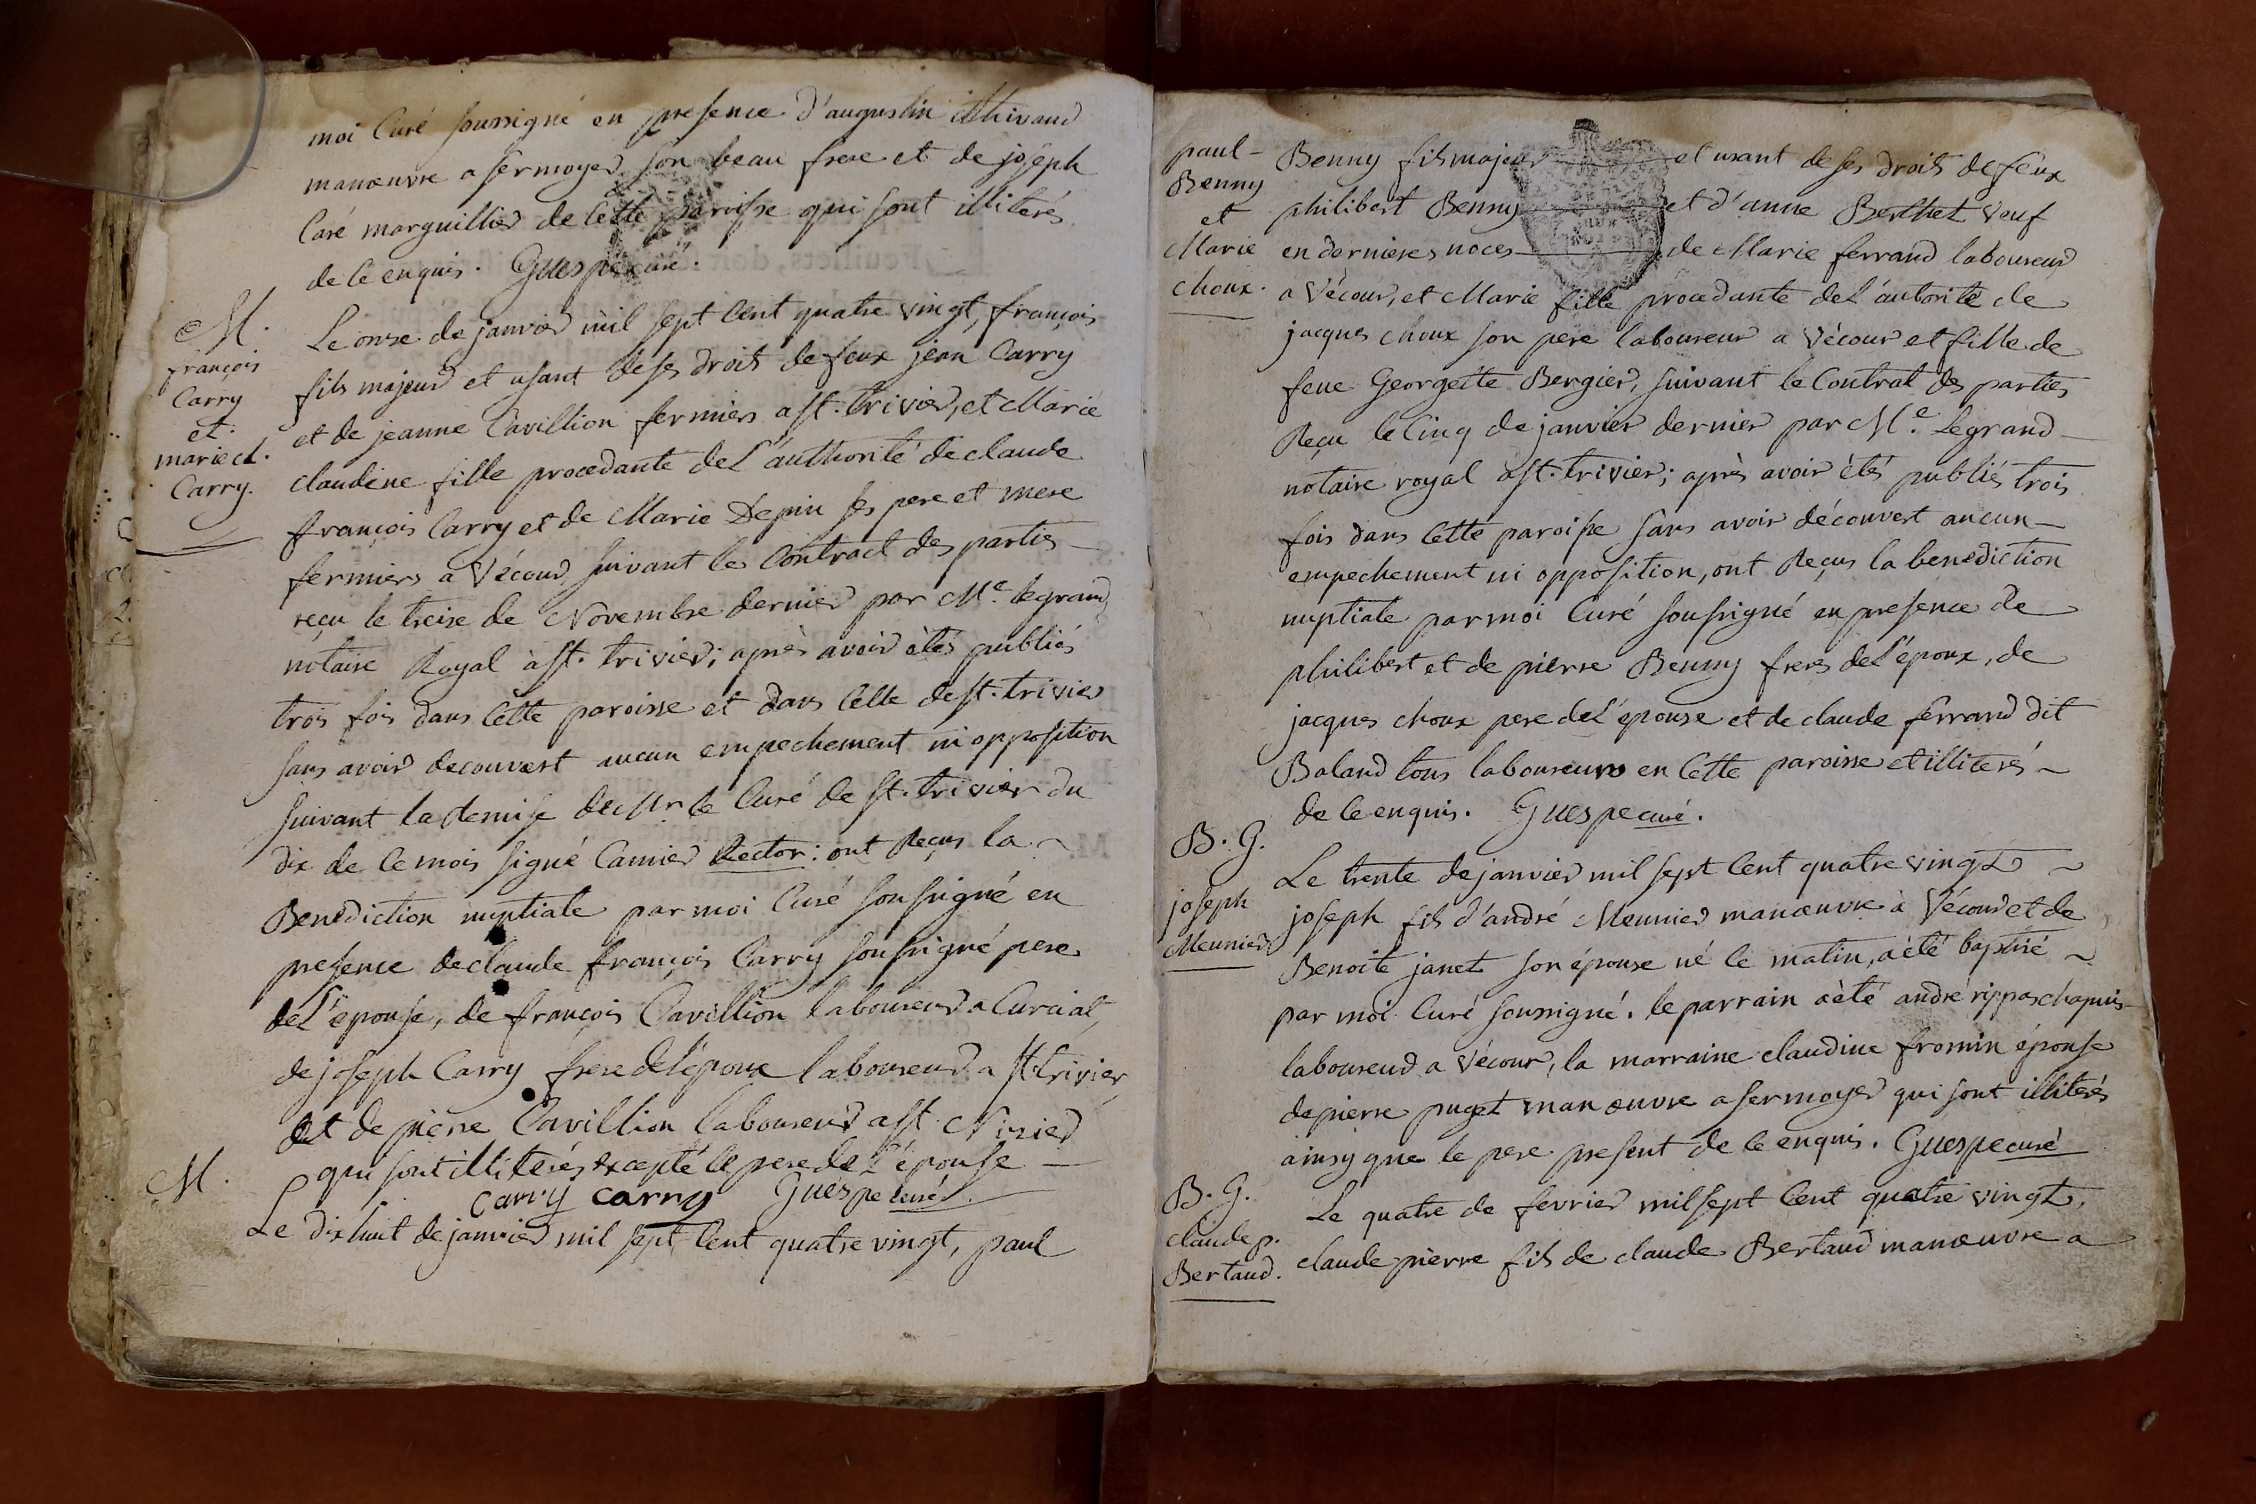 moi Curé soussigné en presence d'augustin Thivaud
manœuvre a sermoyer son beau frere et de joseph
Caré marguillier de Cette paroisse qui sont illiterés
de ce enquis. Guespe curé.
M.
françois
Carry
et.
marie cl.
Carry.
Le onze de janvier mil sept Cent quatre vingt, françois
fils majeur et usant de ses droits de feux jean Carry
et de jeanne Cavillion fermiers a st. trivier, et Marie
claudine fille procedante de L'authorité de claude
françois Carry et de Marie Depin ses pere et mere
fermiers a Vécour, suivant le Contract des parties
reçu le treize de Novembre dernier par Me. legrand,
notaire Royal à st. trivier; après avoir ètés publiés
trois fois dans Cette paroisse et dans Celle de st. trivier
sans avoir decouvert aucun empechement ni opposition
suivant la Remise de Mr le Curé de St. trivier du
dix de Ce mois signé Camier Rector: ont Reçus la ~
Benediction nuptiale par moi Curé soussigné en
presence de claude françois Carry soussigné pere
de L'épouse, de françois Cavillion laboureur a Curciat,
de joseph Carry frere de l'époux laboureur a St trivier,
et de pierre Cavillion laboureur a st. Nizier
qui sont illiterés excepté le pere de L'épouse —
Carry carry Guespe curé.
M.
Le dix huit de janvier mil sept Cent quatre vingt, paul
paul-
Benny
et
Marie
choux.
Benny fils majeur et usant de ses droits de feux
philibert Benny et d'anne Berthet veuf
en dernieres noces de Marie ferrand laboureur
a Vécour, et Marie fille procedante de L'autorité de
jacques choux son pere laboureur a Vécour et fille de
feue Georgette Bergier, suivant le Contrat des parties
Reçu le Cinq de janvier dernier par Me. Legrand
notaire royal a st. trivier; après avoir ètés publiés trois
fois dans Cette paroisse sans avoir découvert aucun-
empechement ni opposition, ont Reçus la benediction
nuptiale par moi Curé soussigné en presence de
philibert et de pierre Benny freres de L'époux, de
jacques choux pere de L'épouse et de claude ferrand dit
Baland tous laboureurs en Cette paroisse et illiterés ~
de ce enquis. Guespe curé.
B. G.
joseph
Meunier
Le trente de janvier mil sept Cent quatre vingt ~
joseph fils d'andré Meunier manœuvre à Vécour et de
Benoite janet son épouse né ce matin, a èté baptisé ~
par moi Curé soussigné. le parrain a èté andré rippas chapuis
laboureur a Vécour, la marraine claudine fromin épouse
de pierre puget manœuvre a sermoyer qui sont illiterés
ainsy que le pere present de ce enquis. Guespe curé
B. G.
claude p.
Bertaud.
Le quatre de fevrier mil sept Cent quatre vingt,
claude pierre fils de claude Bertaud manœuvre a